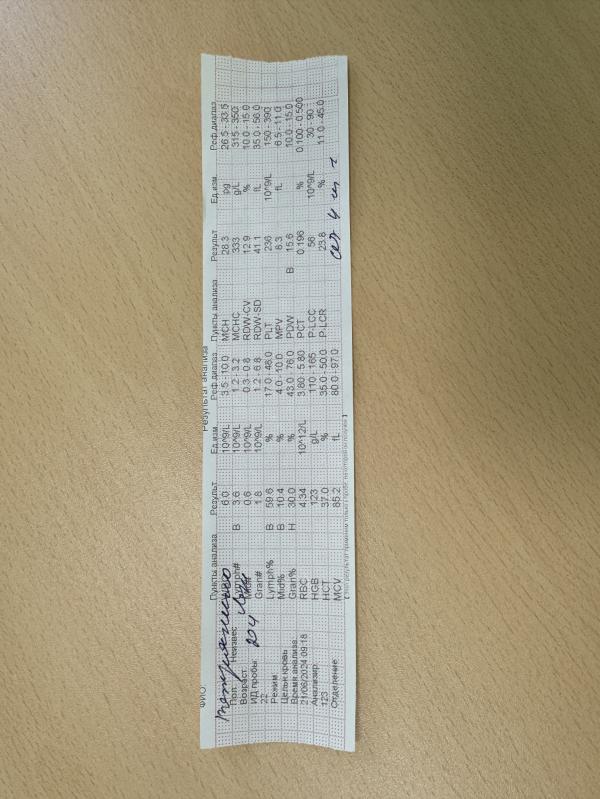 ФИО:
Результат анализа
Пункты анализа Результ Ед.изм Реф.диапаз Пункты анализа Результ Ед.изм Реф.диапаз
6.0 10^9/L 3.5 - 10.0 MCH 28.3 pg 26.5 - 33.5
Пол: Неизвес Lymph# В 3.6 10^9/L 1.2 - 3.2 MCHC 333 g/L 315 - 350
Возраст: 0.6 10^9/L 0.3 - 0.8 RDW-CV 12.9 % 10.0 - 15.0
ИД пробы: 204 Gran# 1.8 10^9/L 1.2 - 6.8 RDW-SD 41.1 fL 35.0 - 56.0
22 Lymph% В 59.6 % 17.0 - 48.0 PLT 236 10^9/L 150 - 390
Режим: Mid% В 10.4 % 4.0 - 10.0 MPV 8.3 fL 6.5 - 11.0
Цельн.кровь Gran% Н 30.0 % 43.0 - 76.0 PDW В 15.6 10.0 - 15.0
Время анализа: RBC 4.34 10^12/L 3.80 - 5.80 PCT 0.196 % 0.100 - 0.500
21/06/2024 09:18 HGB 123 g/L 110 - 165 P-LCC 56 10^9/L 30 - 90
Анализир: HCT 37.0 % 35.0 - 50.0 P-LCR 23.8 % 11.0 - 45.0
123
Отделение: MCV 85.2 fL 80.0 - 97.0